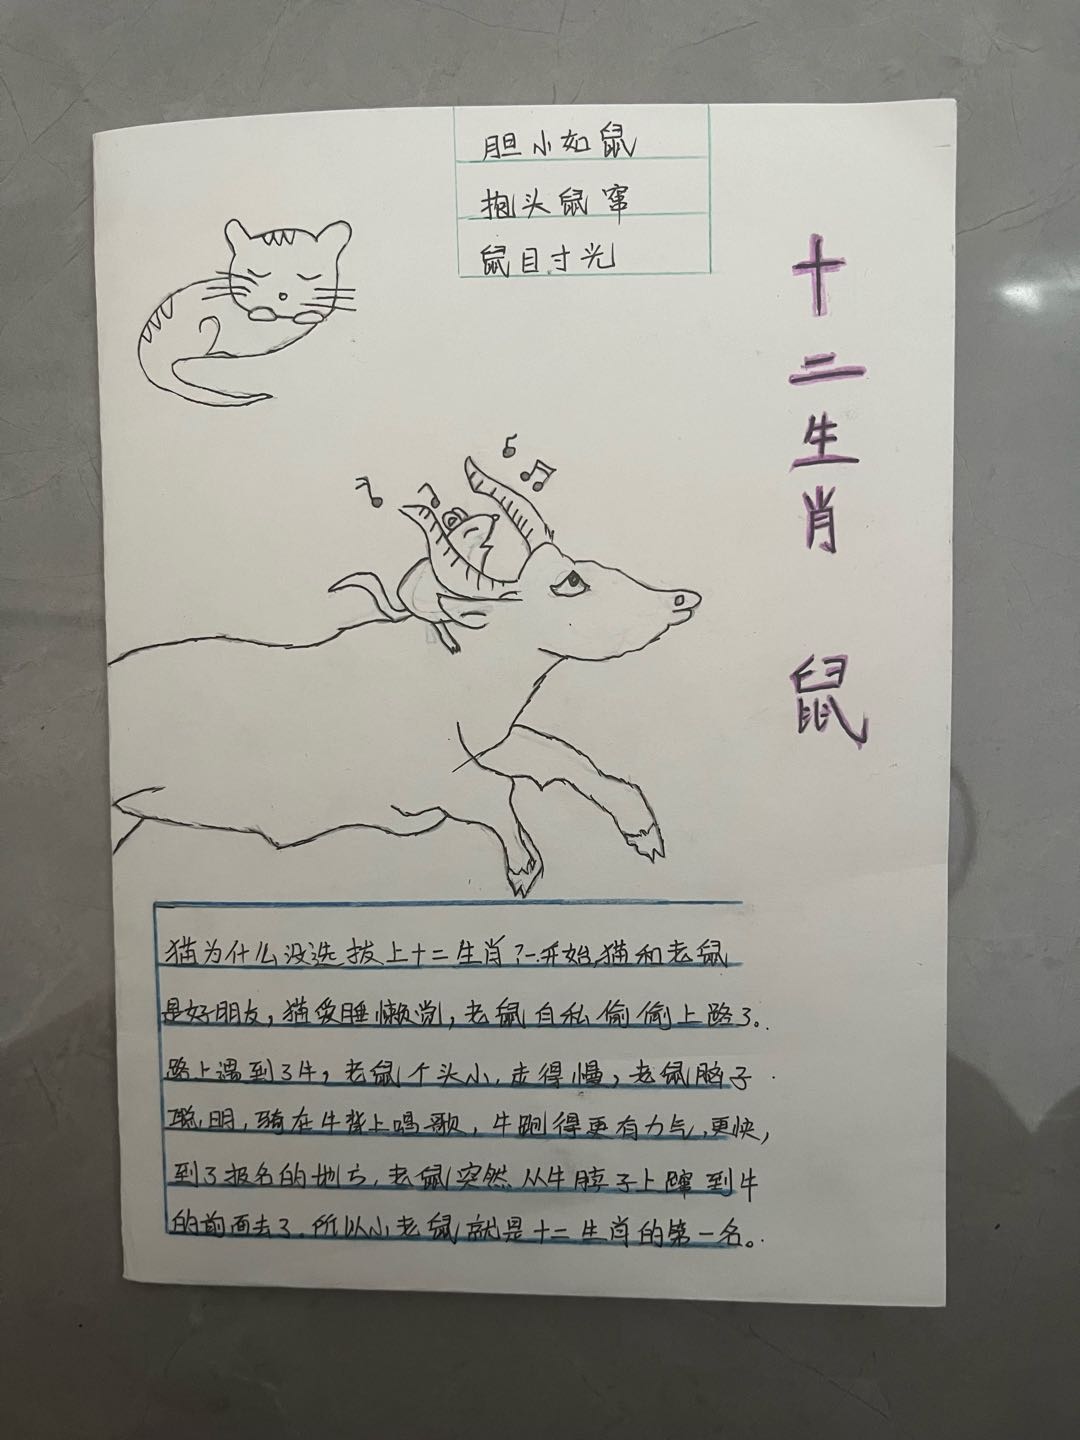 胆小如鼠
抱头鼠窜
鼠目寸光
十二生肖 鼠
猫为什么没选拔上十二生肖?一开始,猫和老鼠
是好朋友,猫爱睡懒觉,老鼠自私偷偷上路了。
路上遇到了牛,老鼠个头小,走得慢,老鼠脑子
聪明,骑在牛背上唱歌,牛跑得更有力气,更快,
到了报名的地方,老鼠突然从牛脖子上蹿到牛
的前面去了。所以小老鼠就是十二生肖的第一名。